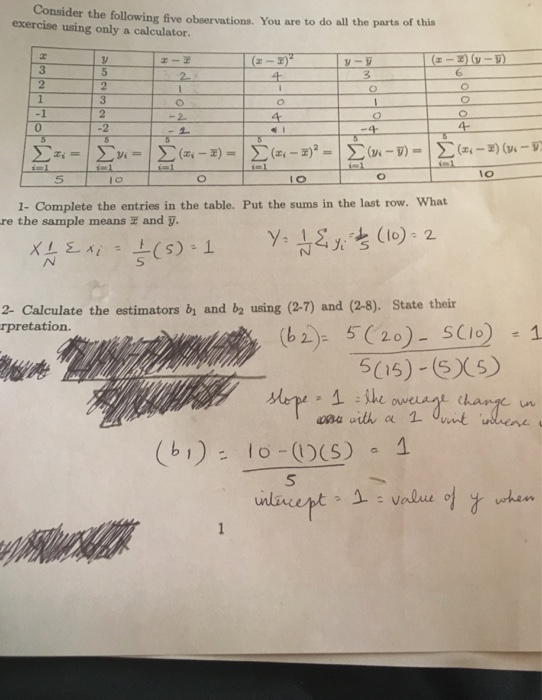 Consider the following five observations. You are to do all the parts of this
exercise using only a calculator.
x y x − x̄ (x − x̄)² y − ȳ (x − x̄)(y − ȳ)
3 5 2 4 3 6
2 2 1 1 0 0
1 3 0 0 1 0
-1 2 -2 4 0 0
0 -2 -1 1 -4 4
5∑i=1 xᵢ = 5∑i=1 yᵢ = 5∑i=1 (xᵢ − x̄) = 5∑i=1 (xᵢ − x̄)² = 5∑i=1 (yᵢ − ȳ) = 5∑i=1 (xᵢ − x̄)(yᵢ − ȳ
5 10 0 10 0 10
1- Complete the entries in the table. Put the sums in the last row. What
re the sample means x̄ and ȳ.
X 1/N Σ xi = 1/5 (5) = 1 Y = 1/N Σ yi = 1/5 (10) = 2
2- Calculate the estimators b₁ and b₂ using (2-7) and (2-8). State their
rpretation.
(b2) = 5(20) - 5(10) / 5(15) - (5)(5) = 1
slope = 1 = the average change in
with a 1 unit increase
(b1) = 10 - (1)(5) / 5 = 1
intercept = 1 = value of y when
1